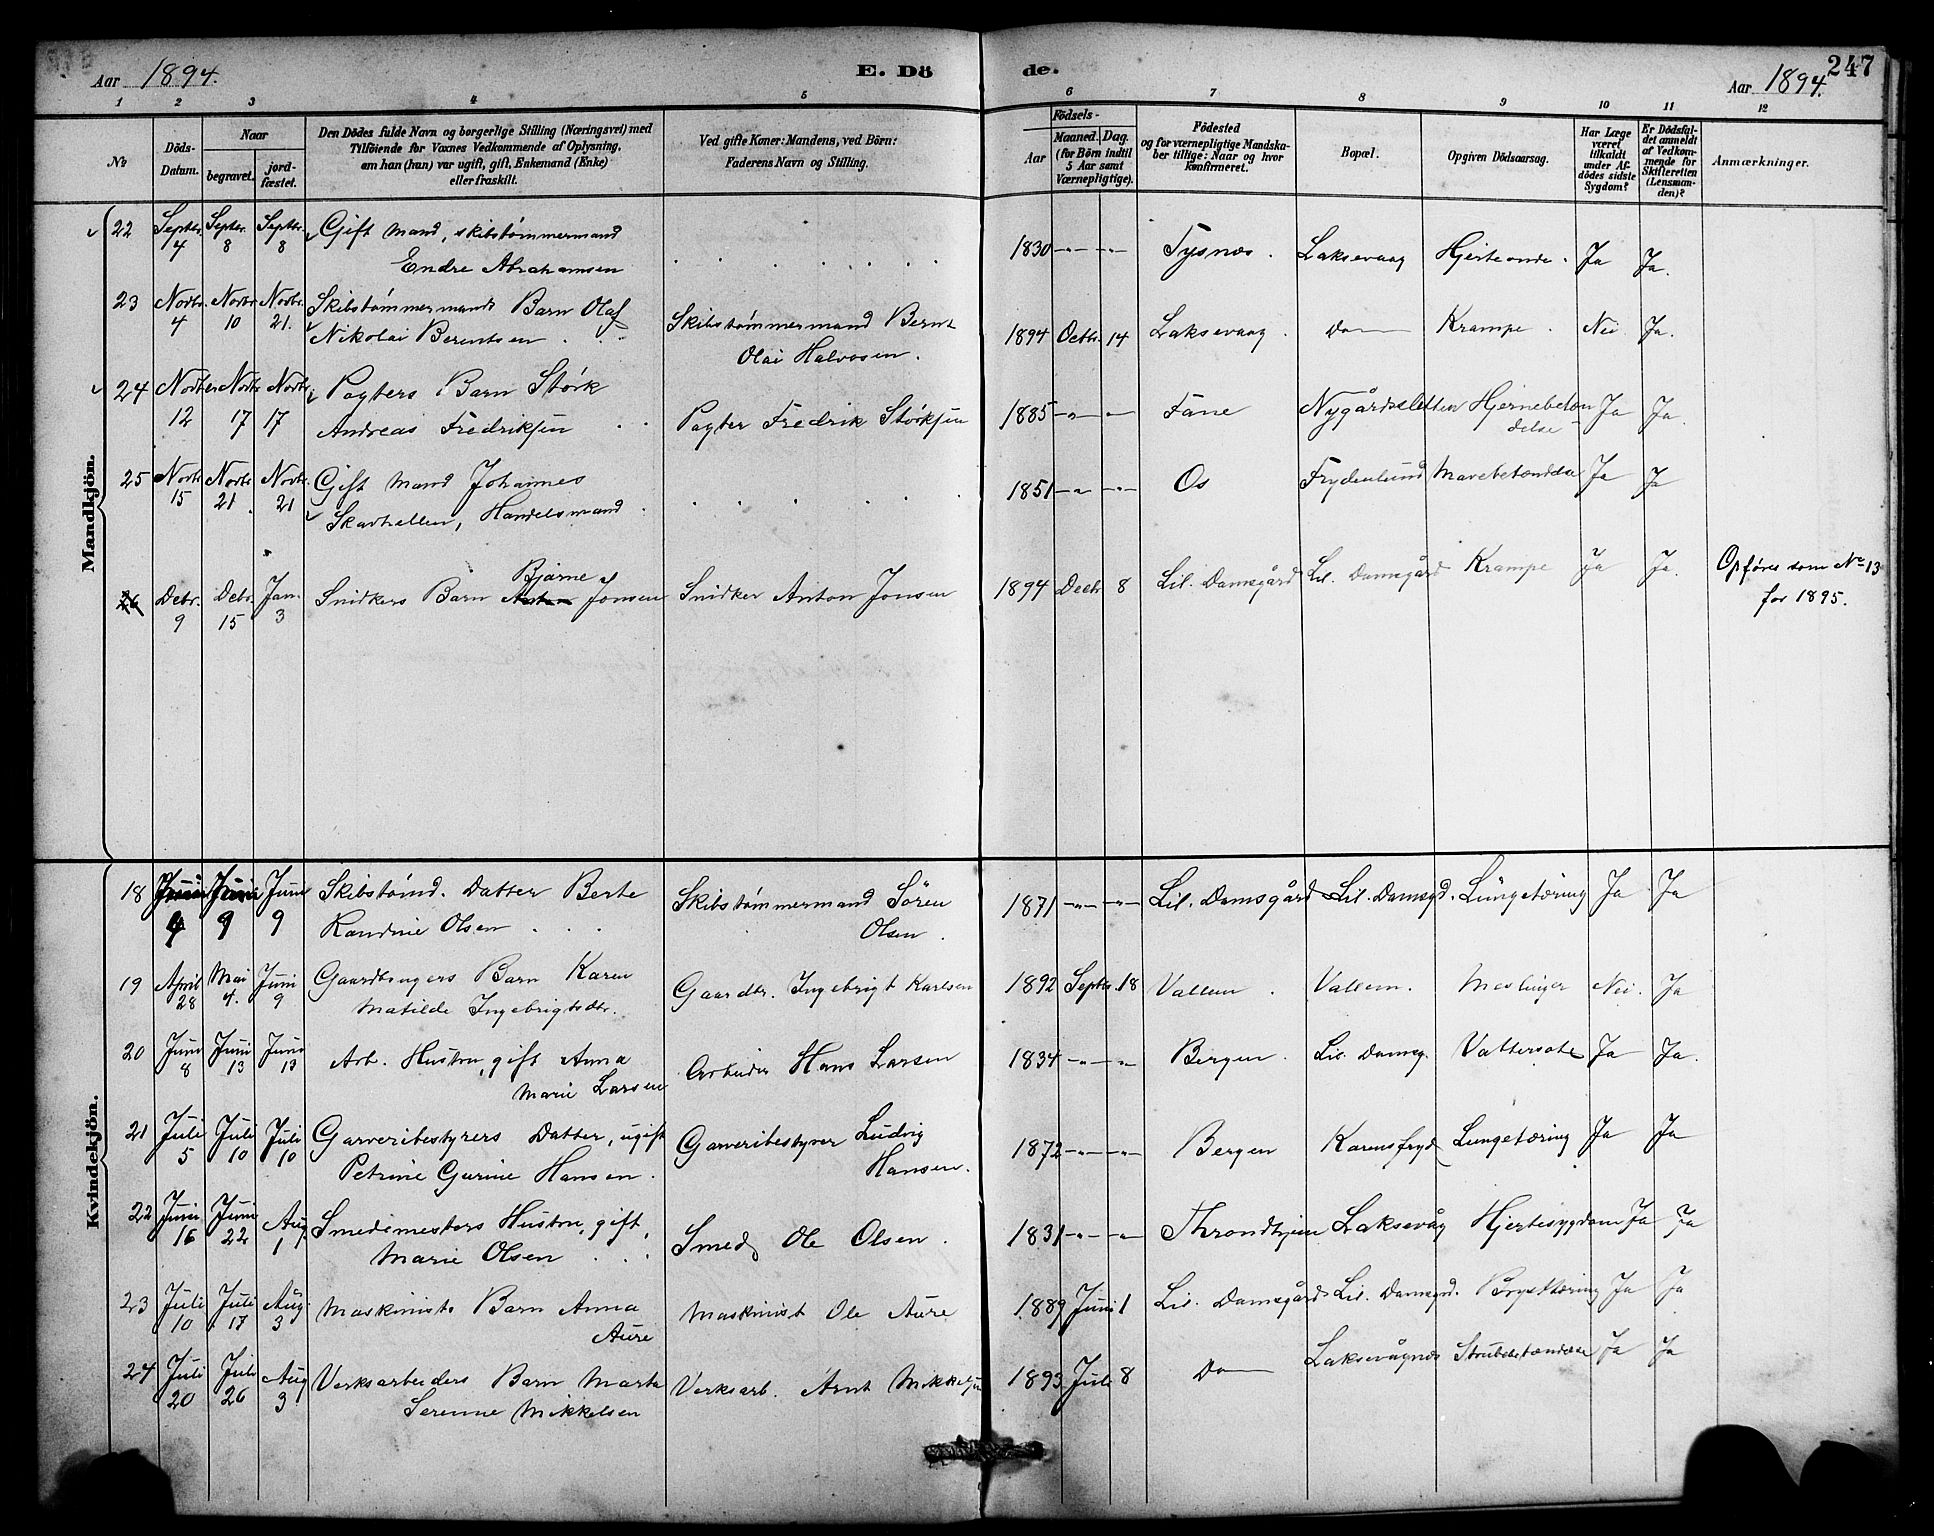 Aar 1894.
E. Dö
de.
Aar 1894.
247
1 2 3 4 5 6 7 8 9 10 11 12
No
Döds-
Datum.
Naar
begravet.
jord-
fæstet.
Den Dödes fulde Navn og borgerlige Stilling (Næringsvei) med
Tilföiende for Voxnes Vedkommende af Oplysning,
om han (hun) var ugift, gift, Enkemand (Enke)
eller fraskilt.
Ved gifte Koner: Mandens, ved Börn:
Faderens Navn og Stilling.
Födsels-
Aar
Maaned. Dag.
(for Börn indtil
5 Aar samt
Værnepligtige).
Födested
og for værnepligtige Mandska-
ber tillige: Naar og hvor
konfirmeret.
Bopæl.
Opgiven Dödsaarsag.
Har Læge
været
tilkaldt
under Af-
dödes sidste
Sygdom?
Er Dödsfal-
det anmeldt
af Vedkom-
mende for
Skifteretten
(Lensman-
den)?
Anmærkninger.
Mandkjön.
22 Septbr. 4 Septbr. 8 Septbr. 8 Gift Mand, skibstømmermand
Endre Abrahamsen
1830 -"- -"- Tysnæs. Laksevaag Hjerteonde. Ja Ja.
23 Novbr. 4 Novbr. 10 Novbr. 21. Skibstømmermands Barn Olaf
Nikolai Berentsen
Skibstømmermand Bernt
Olai Halvosen.
1894 Octbr. 14 Laksevaag. Do Krampe. Nei Ja.
24 Novber 12 Novbr. 17 Novbr. 17 Pagters Barn Størk
Andreas Fredriksen
Pagter Fredrik Størksen
1885 -"- -"- Fane Nygårdssletten Hjernebetæn
delse Ja Ja.
25 Novbr. 15 Novbr. 21. Novbr. 21 Gift Mand Johannes
Skavhellen, Handelsmand.
1851 -"- -"- Os Frydenlund Mavebetændelse Ja Ja
26 Debr. 9 Debr. 15 Jan. 3 Snidkers Barn Bjarne Jonsen
Snidker Anton Jonsen
1894 Decbr 8 Lil. Damsgård Lil. Damsgård Krampe Ja Ja.
Opføres som No 13
for 1895.
Kvindekjön.
18 Juni 4 Juni 9 Juni 9 Skibstømd. Datter Berte
Randine Olsen
Skibstømmermand Sören
Olsen.
1871 -"- -"- Lil. Damsgård Lil. Damsgd. Lungetæring Ja Ja
19 April 28 Mai 4. Juni 9 Gaardbrugers Barn Karen
Matilde Ingebrigtsdtr.
Gaardbr. Ingebrigt Karlsen
1892 Septbr. 18 Vallem. Vallem. Meslinger Nei. Ja
20 Juni 8 Juni 13 Juni 13 Arb. Hustru, gift Anna
Marie Larsen
Arbeider Hans Larsen
1834 -"- -"- Bergen. Lil. Damsg. Vattersot Ja Ja.
21 Juli 5 Juli 10 Juli 10 Garveribestyrers Datter, ugift
Petrine Gurine Hansen.
Garveribestyrer Ludvig
Hansen.
1872 -"- -"- Bergen Karensfryd Lungetæring Ja Ja
22 Juni 16 Juni 22 Aug 1 Smedemesters Hustru, gift,
Marie Olsen
Smed Ole Olsen.
1831 -"- -"- Throndhjem Laksevåg Hjertesygdom Ja Ja
23 Juli 10 Juli 17 Aug. 3 Maskinists Barn Anna
Aure
Maskinist Ole Aure
1889 Juni 1 Lil. Damsgård Lil. Damsgrd. Brysttæring Ja Ja
24 Juli 20 Juli 26 Aug 3 Verksarbeiders Barn Marta
Serenne Mikkelsen
Verksarb. Arnt Mikkelsen
1893 Juli 8 Do Laksevågnæs Strubebetændelse Ja Ja